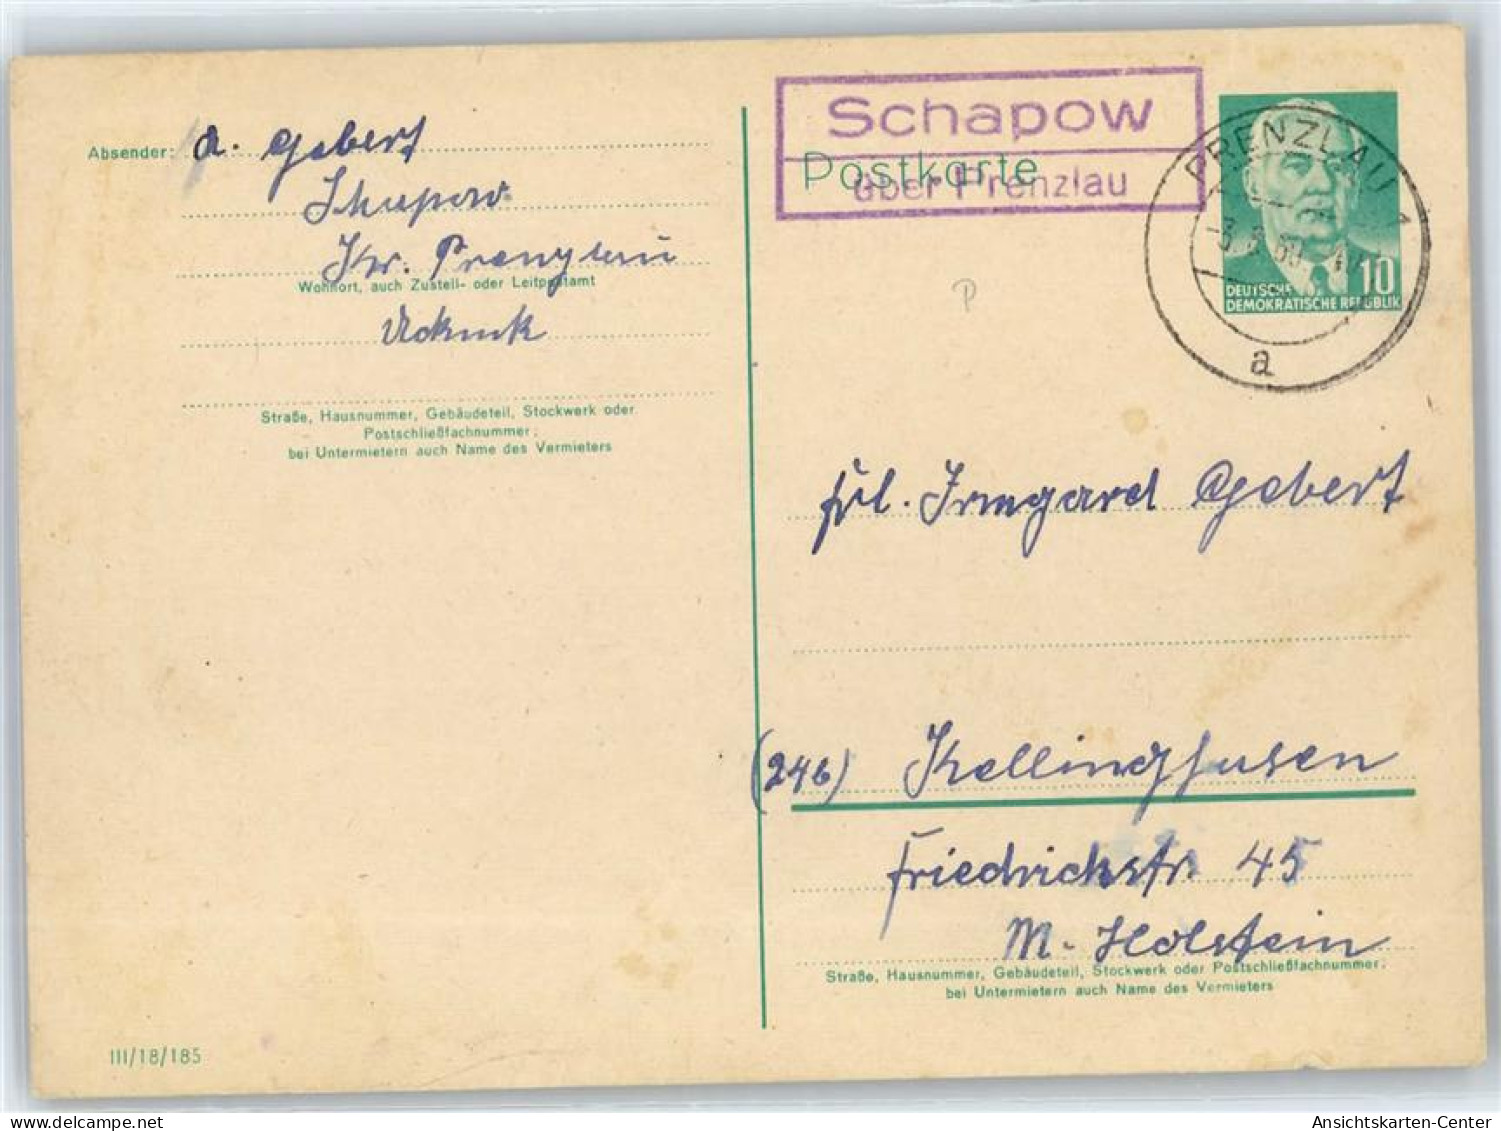 Absender: A. Gebert
Schapow
Kr. Prenzlau
Wohnort, auch Zustell- oder Leitpostamt
Uckmk
Straße, Hausnummer, Gebäudeteil, Stockwerk oder
Postschließfachnummer;
bei Untermietern auch Name des Vermieters
III/18/185
Schapow
Postkarte
über Prenzlau
PRENZLAU 1
a
10
DEUTSCHE
DEMOKRATISCHE REPUBLIK
Frl. Irmgard Gebert
(24b) Kellinghusen
Friedrichstr. 45
M. Holstein
Straße, Hausnummer, Gebäudeteil, Stockwerk oder Postschließfachnummer;
bei Untermietern auch Name des Vermieters
delcampe.net
Ansichtskarten-Center